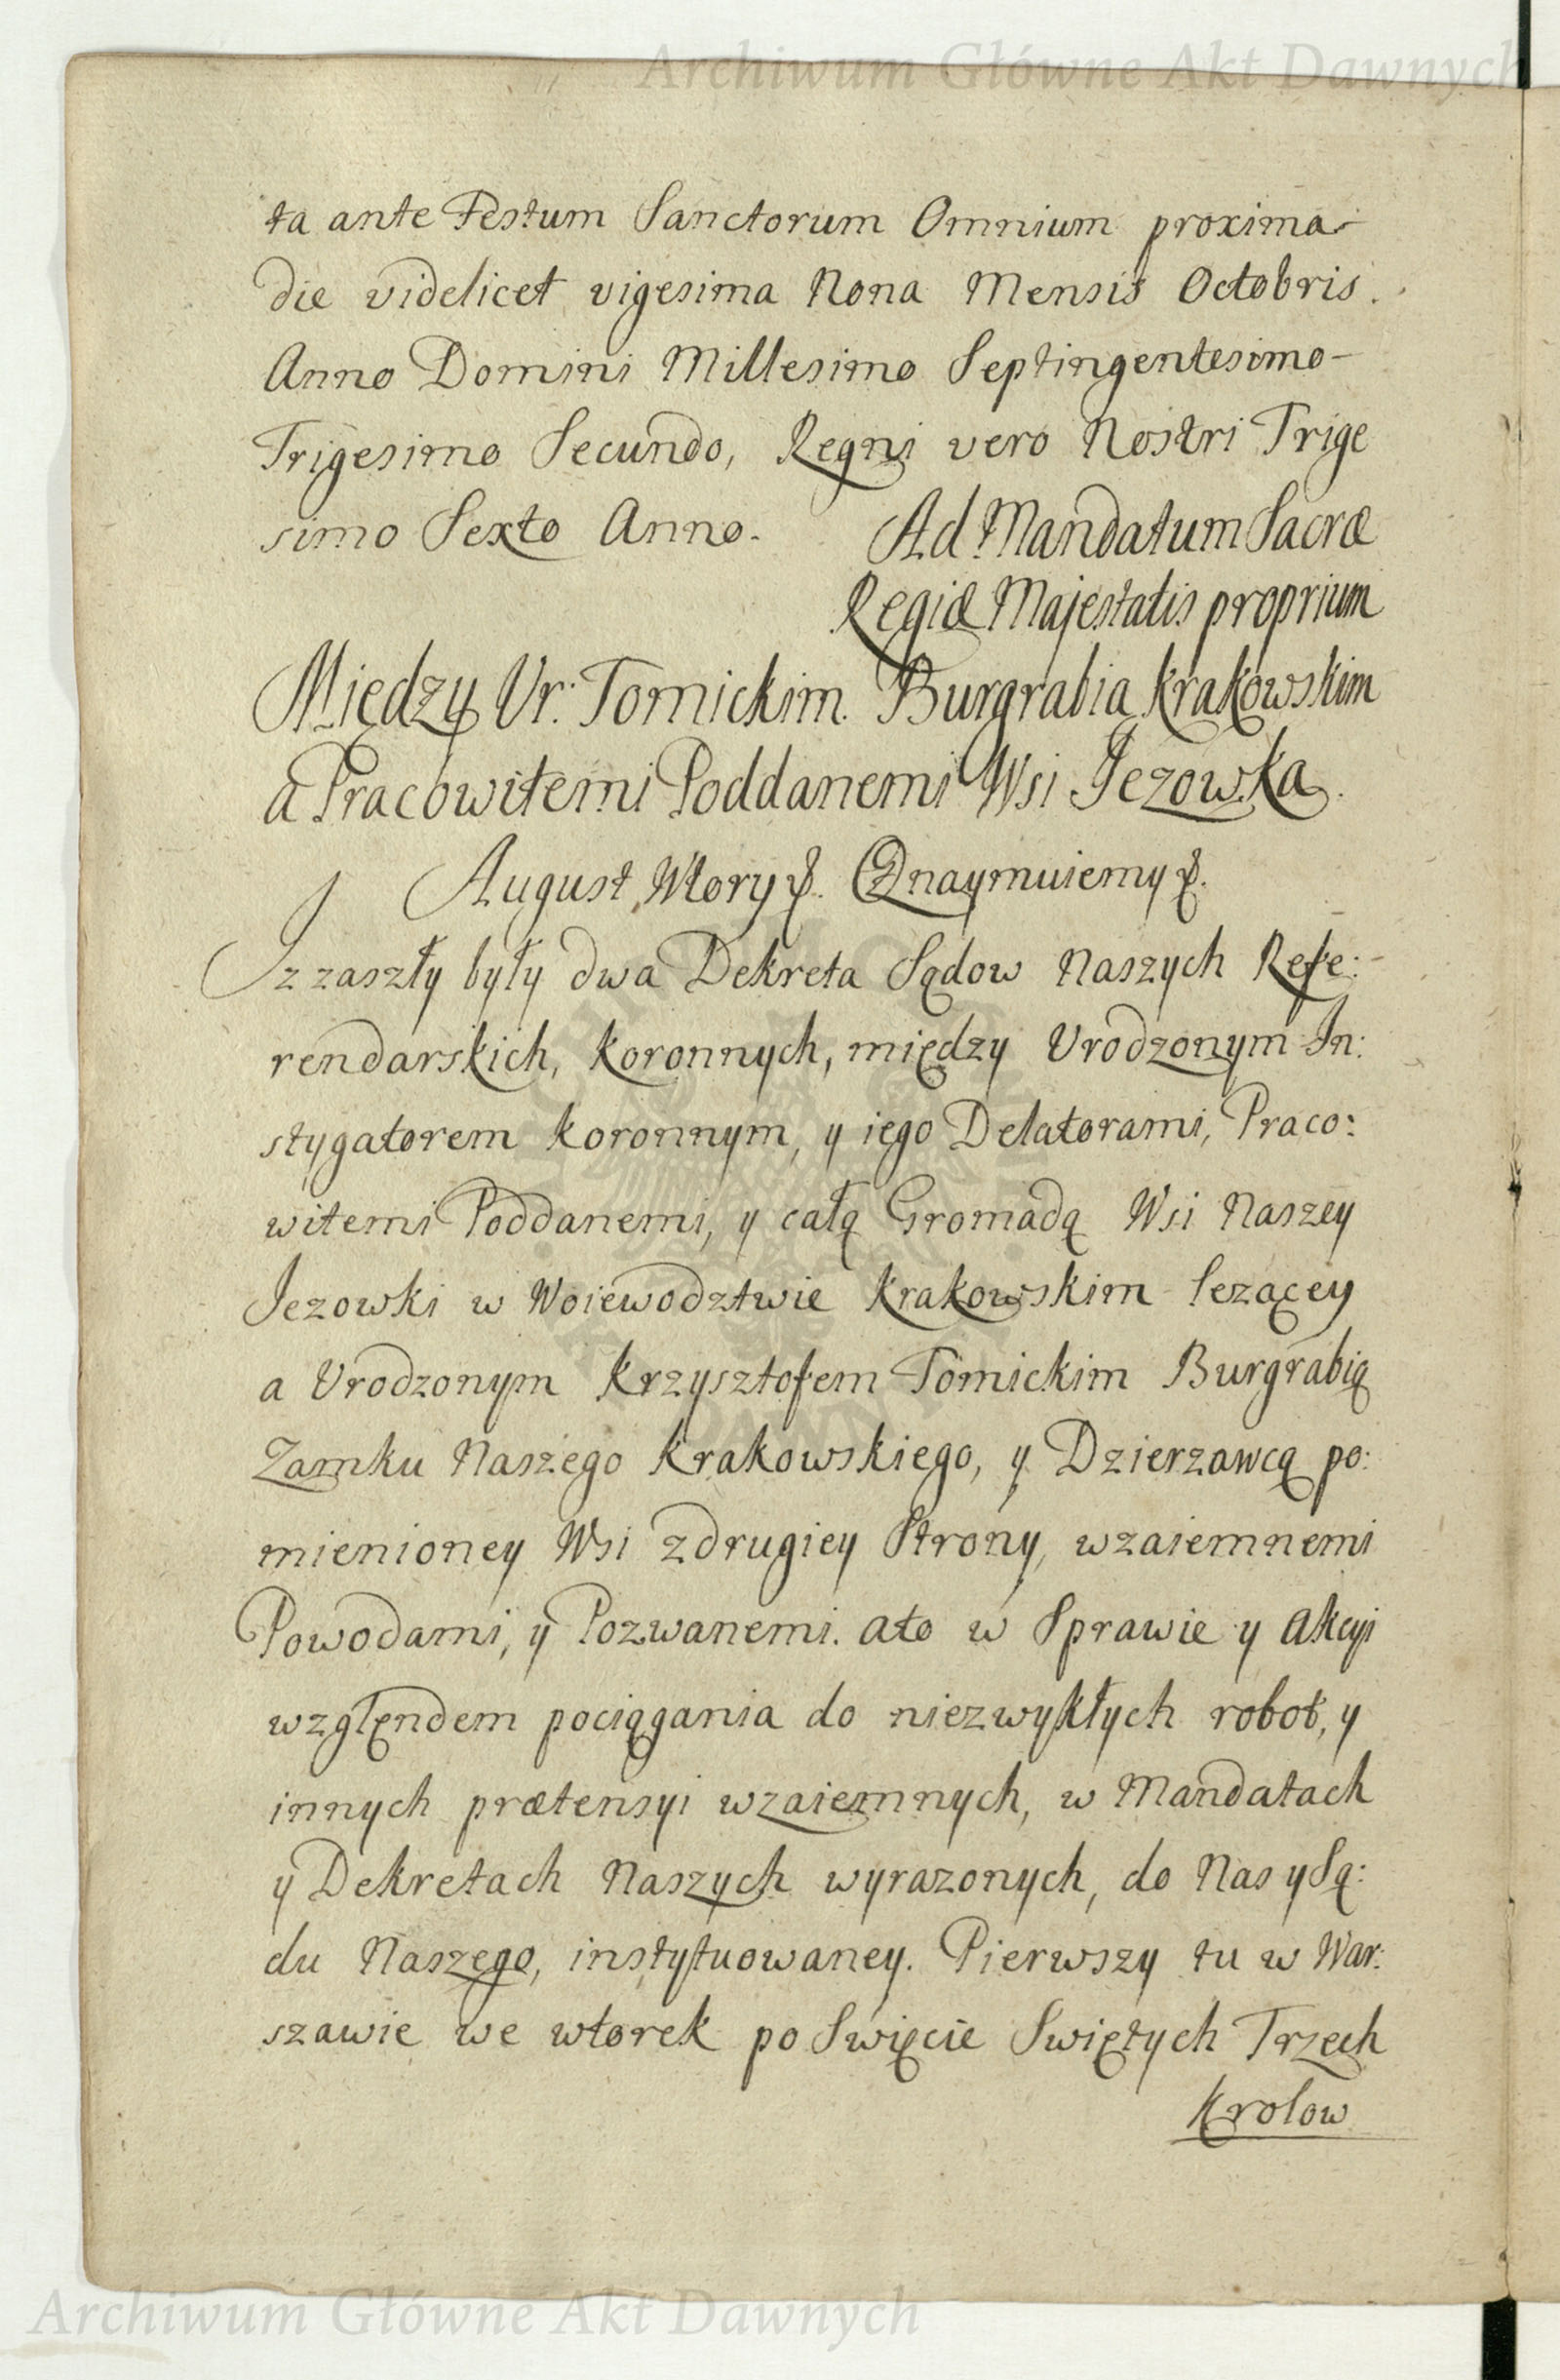 Archiwum Główne Akt Dawnych
ta ante Festum Sanctorum Omnium proxima
die videlicet vigesima Nona Mensis Octobris.
Anno Domini Millesimo Septingentesimo-
Trigesimo Secundo, Regni vero Nostri Trige
simo Sexto Anno. Ad Mandatum Sacræ
Regiæ Majestatis proprium
Między Ur: Tomickim Burgrabią Krakowskim
a Pracowitemi Poddanemi Wsi Jezowka.
August Wtory &. Oznaymuiemy &.
Iz zaszły były dwa Dekreta Sądow Naszych Refe:
rendarskich, Koronnych, między Urodzonym In:
stygatorem Koronnym, y iego Delatorami, Praco:
witemi Poddanemi, y całą Gromadą Wsi Naszey
Jezowki w Woiewodztwie Krakowskim lezącey
a Urodzonym Krzysztofem Tomickim Burgrabią
Zamku Naszego Krakowskiego, y Dzierzawcą po:
mienioney Wsi z drugiey Strony, wzaiemnemi
Powodami, y Pozwanemi. Ato w Sprawie y Akcyi
względem pociągania do niezwykłych robot, y
innych prætensyi wzaiemnych, w Mandatach
y Dekretach Naszych wyrazonych, do Nas y Są:
du Naszego, instytuowaney. Pierwszy tu w War:
szawie we wtorek po Swięcie Swiętych Trzech
Krolow
Archiwum Główne Akt Dawnych